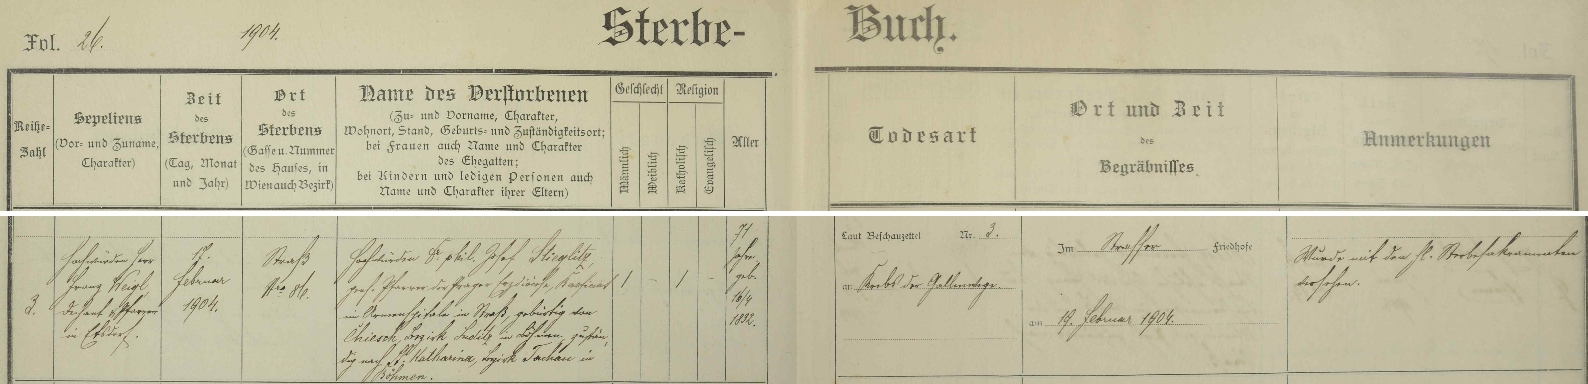 Fol. 26. 1904. Sterbe- Buch.
Reihe-
Zahl
Sepeliens
(Vor- und Zuname,
Charakter)
Zeit
des
Sterbens
(Tag, Monat
und Jahr)
Ort
des
Sterbens
(Gasse u. Nummer
des Hauses, in
Wien auch Bezirk)
Name des Verstorbenen
(Zu- und Vorname, Charakter,
Wohnort, Stand, Geburts- und Zuständigkeitsort;
bei Frauen auch Name und Charakter
des Ehegatten;
bei Kindern und ledigen Personen auch
Name und Charakter ihrer Eltern)
Geschlecht
Männlich
Weiblich
Religion
Katholisch
Evangelisch
Alter
Todesart
Ort und Zeit
des
Begräbnisses
Anmerkungen
3.
Hochwürden Herr
Franz Weigl
Dechant u. Pfarrer
in Etsdorf.
17.
Februar
1904.
Straß
Nro 86.
Hochwürden Dr. phil. Josef Stieglitz,
pens. Pfarrer der Prager Erzdiözese,
im Armenspitale in Straß, gebürtig von
Chiesch, Bezirk Luditz in Böhmen, zustän-
dig nach St. Katharina, Bezirk Tachau in
Böhmen.
1 - 1 -
71
Jahre
geb.
16/4
1832.
Laut Beschauzettel Nr. 3.
an Krebs der Gallenwege.
Im Strasser Friedhofe
am 19. Februar 1904.
Wurde mit den hl. Sterbesakramenten
versehen.